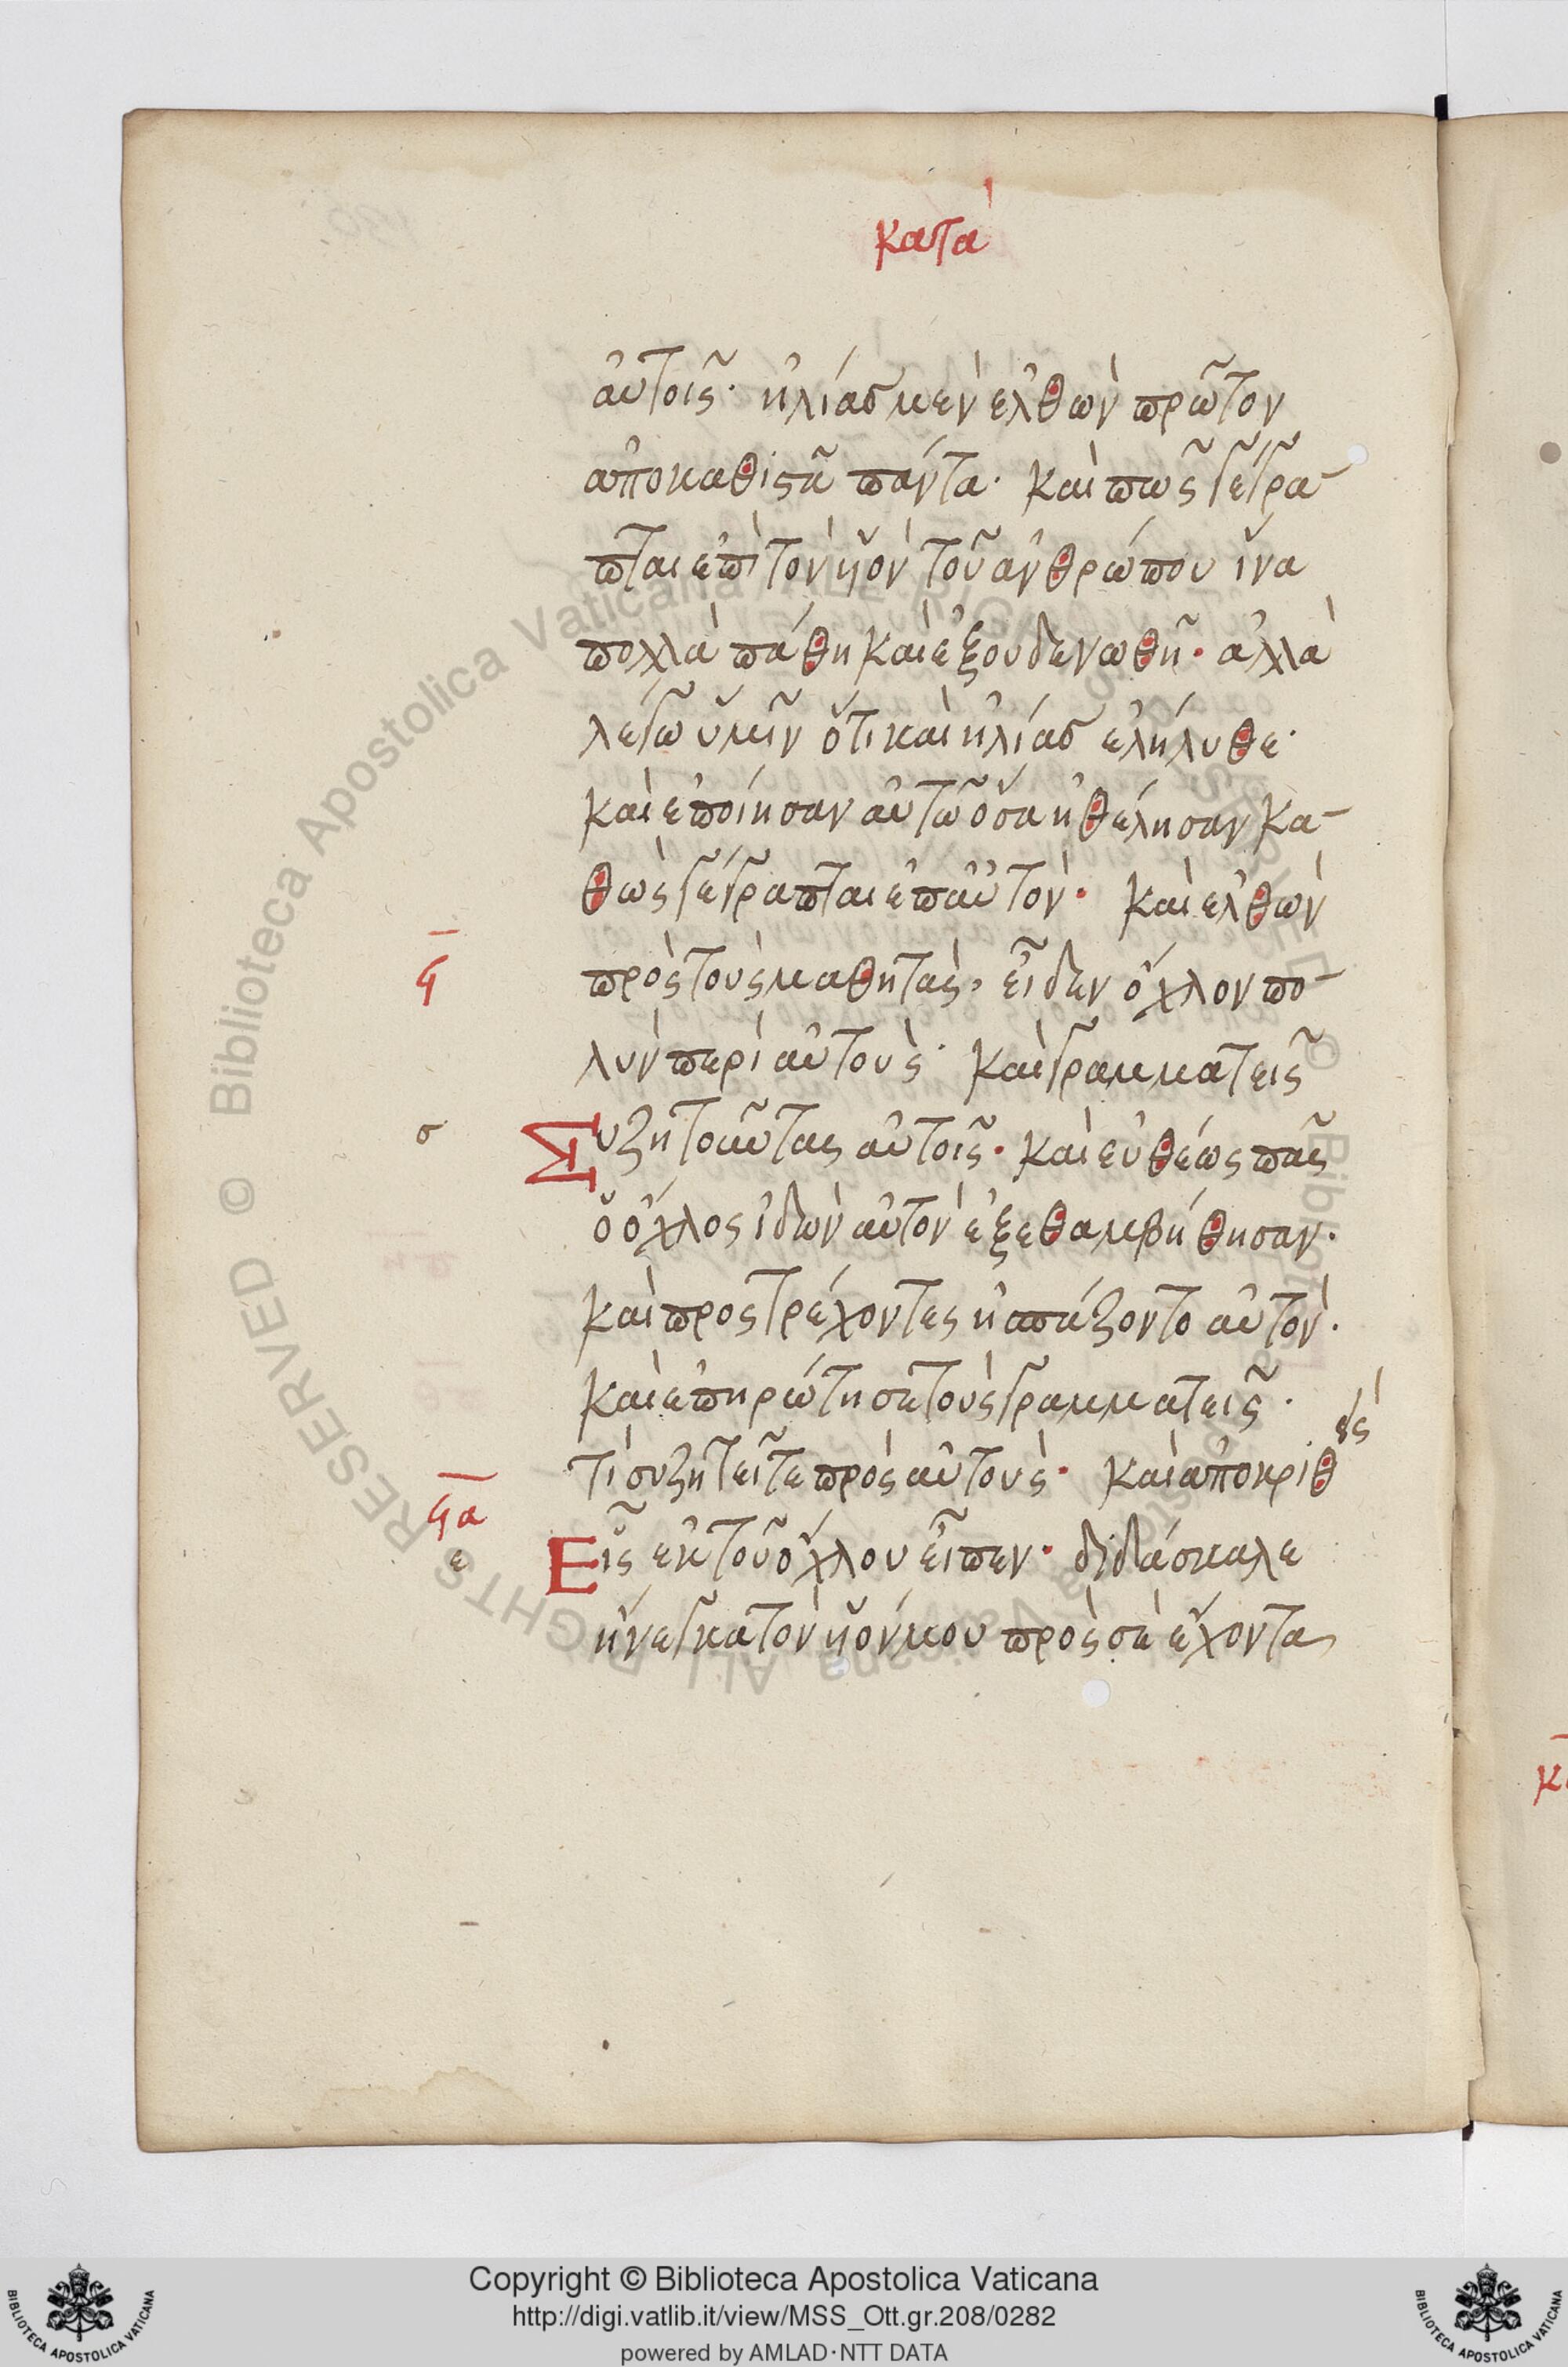 κατὰ
αὐτοῖς· ἠλίας μὲν ἐλθὼν πρῶτον
ἀποκαθιστᾶ πάντα· καὶ πῶς γέγρα-
πται ἐπὶ τὸν ὑὸν τοῦ ἀνθρώπου ἵνα
πολλὰ πάθη καὶ ἐξουδενωθῆ· ἀλλὰ
λέγω ὑμῖν ὅτι καὶ ἠλίας ἐλήλυθε·
καὶ ἐποίησαν αὐτῶ ὅσα ἠθέλησαν κα-
θὼς γέγραπται ἐπ αὐτόν· καὶ ἐλθὼν
ϟ
πρὸς τοὺς μαθητὰς, εἶδεν ὄχλον πο-
λὺν περὶ αὐτοὺς· καὶ γραμματεῖς
σ
Συζητοῦντας αὐτοῖς· καὶ εὐθέως πᾶς
ὁ ὄχλος ἰδὼν αὐτὸν ἐξεθαμβήθησαν·
καὶ προςτρέχοντες ἠσπάζοντο αὐτὸν·
καὶ ἐπηρώτησε τοὺς γραμματεῖς·
τί συζητεῖτε πρὸς αὐτοὺς· καὶ ἀποκριθεὶς
ϟα
ε
Εἷς ἐκ τοῦ ὄχλου εἶπεν· διδάσκαλε
ἤνεγκα τὸν ὑόν μου πρὸς σὲ ἔχοντα
Copyright © Biblioteca Apostolica Vaticana
http://digi.vatlib.it/view/MSS_Ott.gr.208/0282
powered by AMLAD·NTT DATA
BIBLIOTECA APOSTOLICA VATICANA
BIBLIOTECA APOSTOLICA VATICANA
© Biblioteca Apostolica Vaticana ALL RIGHTS RESERVED
© Biblioteca Apostolica Vaticana ALL RIGHTS RESERVED